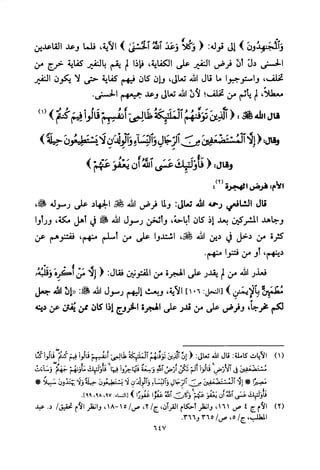 وَالْمُجَاهِدُونَ ﴾ إلى قوله: ﴿ وَكُلًّا وَعَدَ اللَّهُ الْحُسْنَىٰ ﴾ الآية، فلما وعد القاعدين
الحسنى دل أن فرض النفير على الكفاية، فإذا لم يقم بالنفير كفاية خرج من
تخلف، واستوجبوا ما قال الله تعالى، وإن كان فيهم كفاية حتى لا يكون النفير
معطلاً، لم يأثم من تخلف؛ لأن الله تعالى وعد جميعهم الحسنى.
قال الله ﷻ: ﴿ الَّذِينَ تَوَفَّاهُمُ الْمَلَائِكَةُ ظَالِمِي أَنْفُسِهِمْ قَالُوا فِيمَ كُنْتُمْ ﴾ (١)
وقال: ﴿ إِلَّا الْمُسْتَضْعَفِينَ مِنَ الرِّجَالِ وَالنِّسَاءِ وَالْوِلْدَانِ لَا يَسْتَطِيعُونَ حِيلَةً ﴾
وقال: ﴿ فَأُولَٰئِكَ عَسَى اللَّهُ أَنْ يَعْفُوَ عَنْهُمْ ﴾
الأم: فرض الهجرة (٢):
قال الشافعي رحمه الله تعالى: ولما فرض الله ﷻ الجهاد على رسوله ﷺ،
وجاهد المشركين بعد إذ كان أباحه، وأثخن رسول الله ﷺ في أهل مكة، ورأوا
كثرة من دخل في دين الله ﷻ، اشتدوا على من أسلم منهم، ففتنوهم عن
دينهم، أو من فتنوا منهم.
فعذر الله من لم يقدر على الهجرة من المفتونين فقال: ﴿ إِلَّا مَنْ أُكْرِهَ وَقَلْبُهُ
مُطْمَئِنٌّ بِالْإِيمَانِ ﴾ [النحل: ١٠٦] الآية، وبعث إليهم رسول الله ﷺ: «إن الله جعل
لكم مخرجاً»، وفرض على من قدر على الهجرة الخروج إذا كان ممن يُفتَن عن دينه
(١) الآيات كاملة: قال الله تعالى: ﴿ إِنَّ الَّذِينَ تَوَفَّاهُمُ الْمَلَائِكَةُ ظَالِمِي أَنْفُسِهِمْ قَالُوا فِيمَ كُنْتُمْ قَالُوا كُنَّا
مُسْتَضْعَفِينَ فِي الْأَرْضِ قَالُوا أَلَمْ تَكُنْ أَرْضُ اللَّهِ وَاسِعَةً فَتُهَاجِرُوا فِيهَا فَأُولَٰئِكَ مَأْوَاهُمْ جَهَنَّمُ وَسَاءَتْ
مَصِيرًا * إِلَّا الْمُسْتَضْعَفِينَ مِنَ الرِّجَالِ وَالنِّسَاءِ وَالْوِلْدَانِ لَا يَسْتَطِيعُونَ حِيلَةً وَلَا يَهْتَدُونَ سَبِيلًا *
فَأُولَٰئِكَ عَسَى اللَّهُ أَنْ يَعْفُوَ عَنْهُمْ وَكَانَ اللَّهُ عَفُوًّا غَفُورًا ﴾ [النساء: ٩٧، ٩٨، ٩٩].
(٢) الأم ج ٤ ص ١٦١، وانظر أحكام القرآن، ج/٢، ص/١٥-١٨، وانظر الأم تحقيق/ د. عبد
المطلب، ج/٥، ص/٣٦٥ و٣٦٦.
٦٤٧